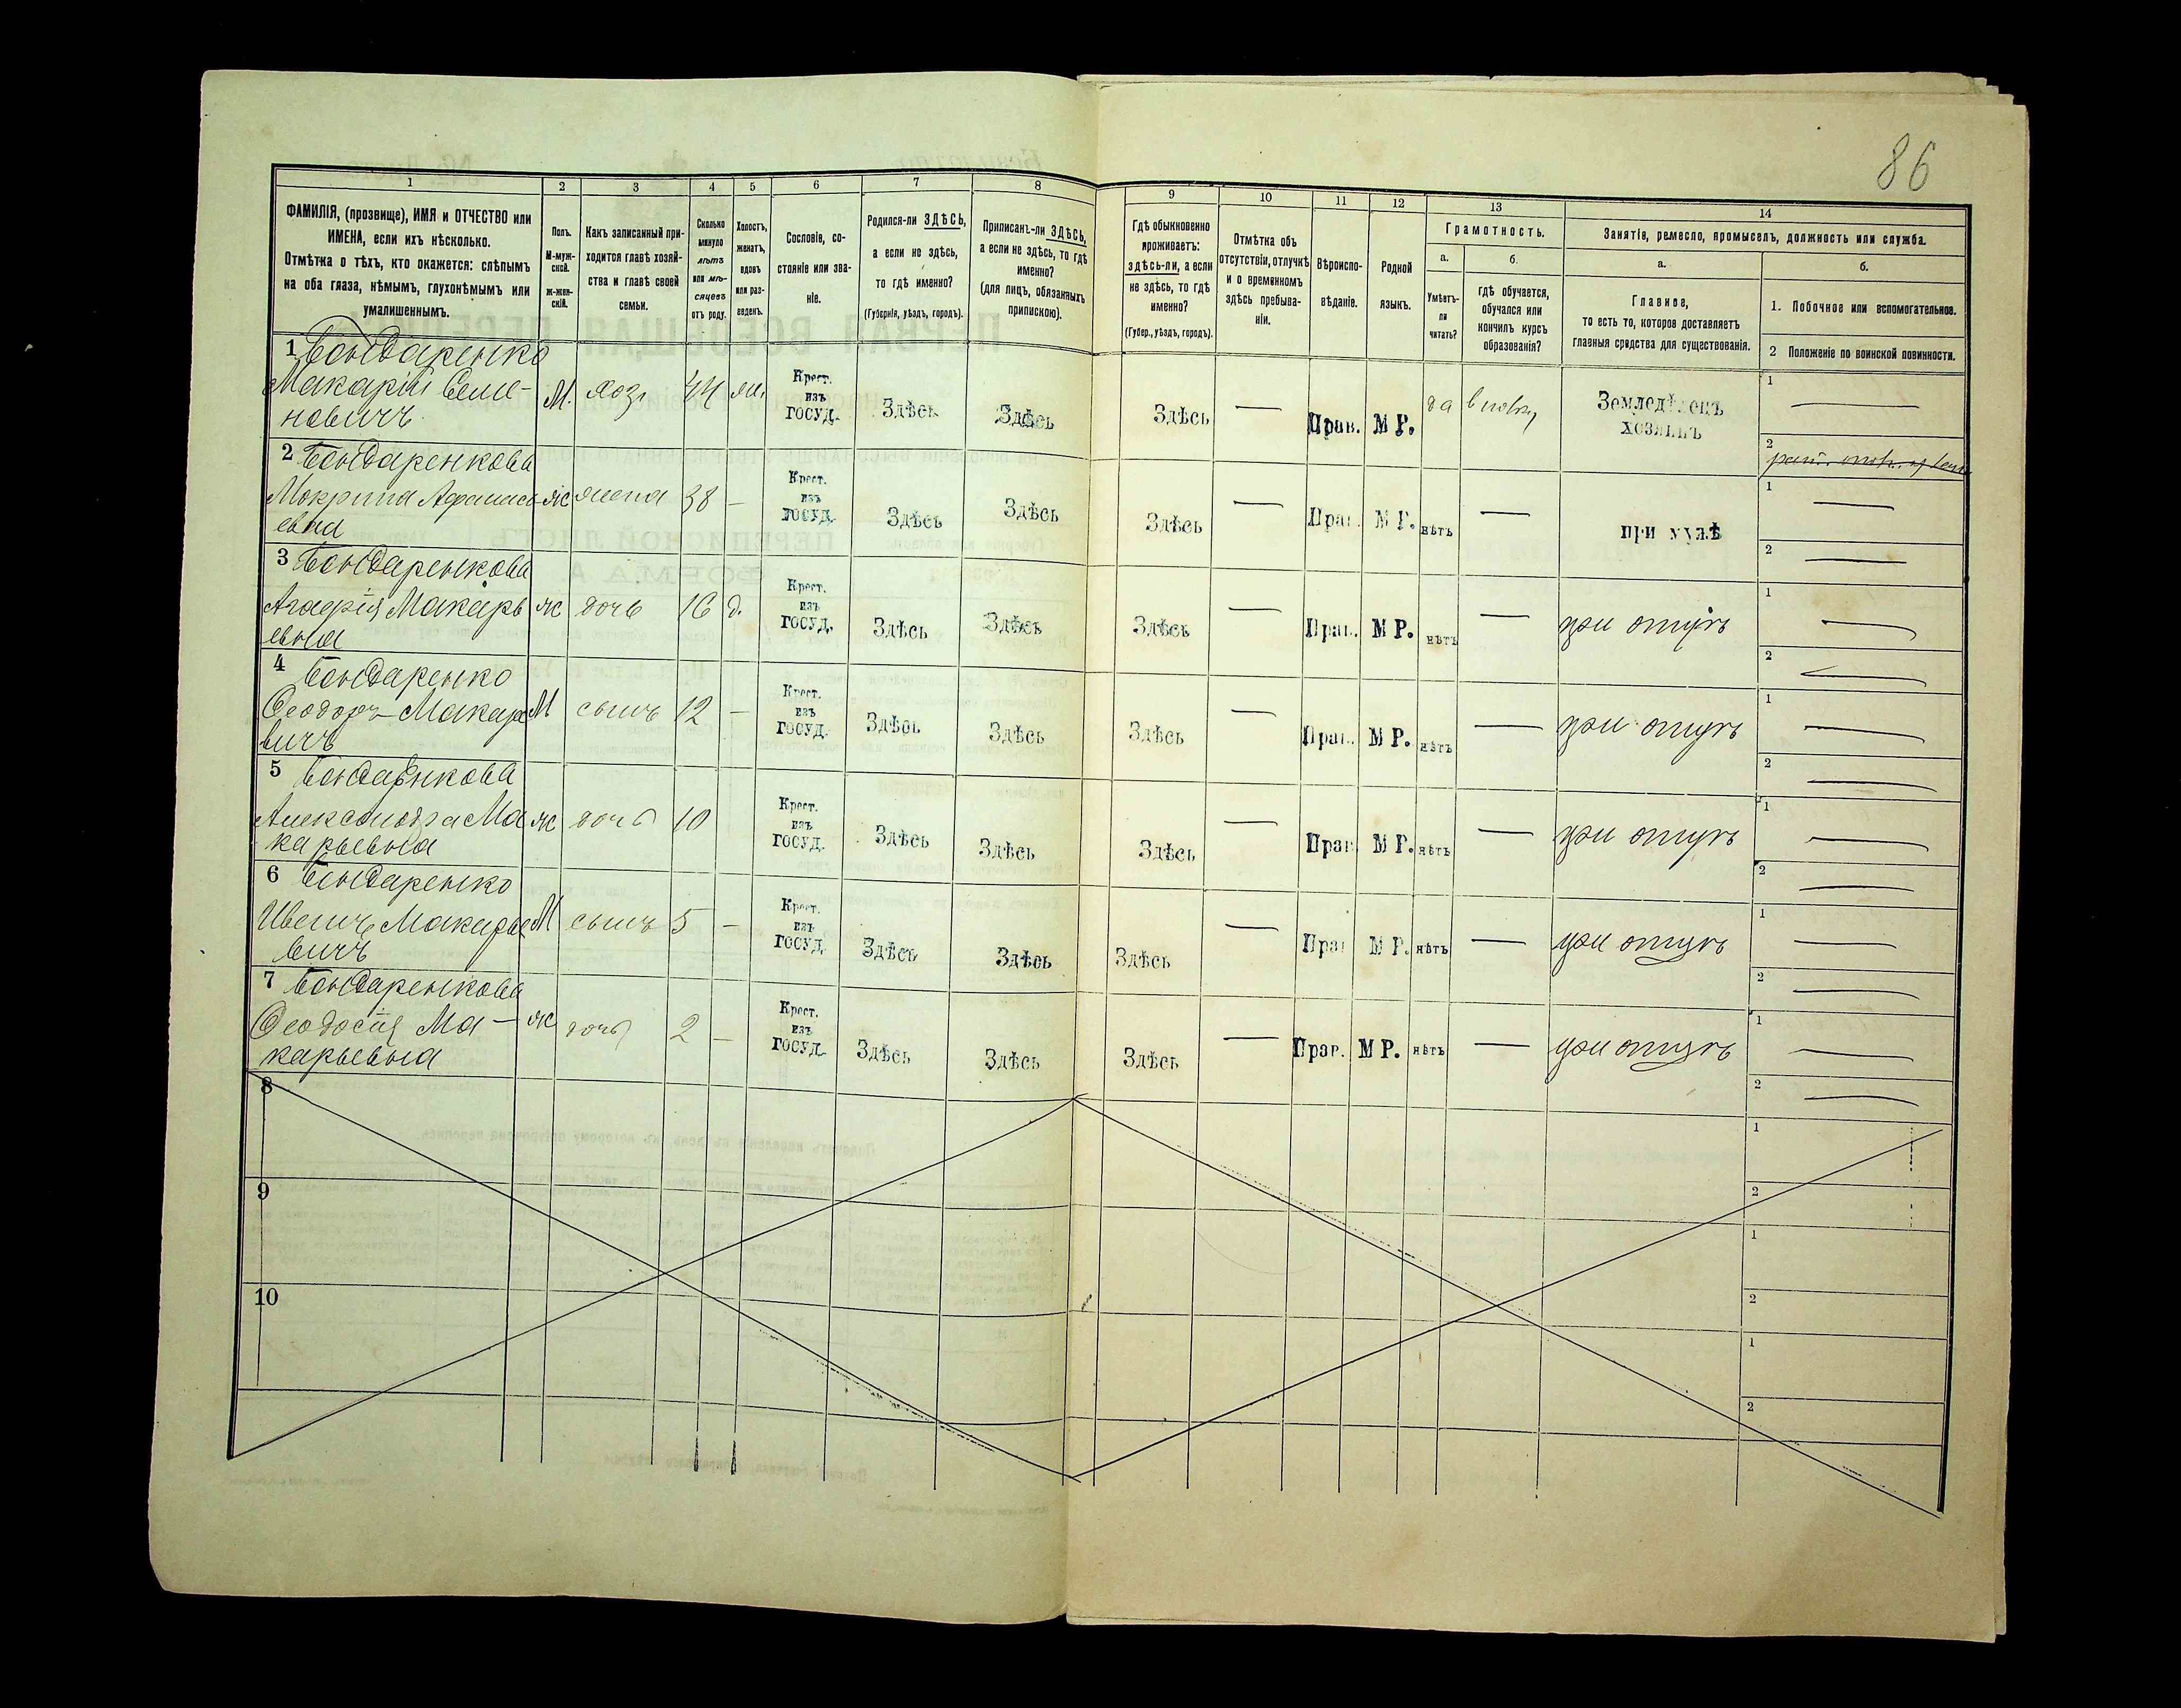 86
1 2 3 4 5 6 7 8 9 10 11 12 13 14
ФАМИЛІЯ, (прозвище), ИМЯ и ОТЧЕСТВО или
ИМЕНА, если ихъ нѣсколько.
Отмѣтка о тѣхъ, кто окажется: слѣпымъ
на оба глаза, нѣмымъ, глухонѣмымъ или
умалишеннымъ.
Полъ.
М-муж-
ской.
ж-жен-
скій.
Какъ записанный при-
ходится главѣ хозяй-
ства и главѣ своей
семьи.
Сколько
минуло
лѣтъ
или мѣ-
сяцевъ
отъ роду.
Холостъ,
женатъ,
вдовъ
или раз-
веденъ.
Сословіе, со-
стояніе или зва-
ніе.
Родился-ли ЗДѢСЬ,
а если не здѣсь,
то гдѣ именно?
(Губернія, уѣздъ, городъ).
Приписанъ-ли ЗДѢСЬ,
а если не здѣсь, то гдѣ
именно?
(для лицъ, обязанныхъ
припискою).
Гдѣ обыкновенно
проживаетъ:
здѣсь-ли, а если
не здѣсь, то гдѣ
именно?
(Губер., уѣздъ, городъ).
Отмѣтка объ
отсутствіи, отлучкѣ
и о временномъ
здѣсь пребыва-
ніи.
Вѣроиспо-
вѣданіе.
Родной
языкъ.
Грамотность.
а.
Умѣетъ-
ли
читать?
б.
гдѣ обучается,
обучался или
кончилъ курсъ
образованія?
Занятіе, ремесло, промыселъ, должность или служба.
а.
Главное,
то есть то, которое доставляетъ
главныя средства для существованія.
б.
1. Побочное или вспомогательное.
2 Положеніе по воинской повинности.
1 Бондаренко
Макарій Семе-
новичъ
М. хоз. 44 жн. Крест. изъ ГОСУД. Здѣсь Здѣсь Здѣсь — Прав. М Р. да Земледѣлецъ хозяинъ 1 — 2
2 Бондаренкова
Мокрина Афанась
евна
ж жена 38 — Крест. изъ ГОСУД. Здѣсь Здѣсь Здѣсь — Прав. М Р. нѣтъ — при мужѣ 1 — 2 —
3 Бондаренкова
Агафія Макарь
евна
ж дочь 16 д. Крест. изъ ГОСУД. Здѣсь Здѣсь Здѣсь — Прав. М Р. нѣтъ — при отцѣ 1 — 2 —
4 Бондаренко
Ѳеодоръ Макарье
вичъ
М сынъ 12 — Крест. изъ ГОСУД. Здѣсь Здѣсь Здѣсь — Прав. М Р. нѣтъ — при отцѣ 1 — 2 —
5 Бондаренкова
Александра Ма
карьевна
ж дочь 10 Крест. изъ ГОСУД. Здѣсь Здѣсь Здѣсь — Прав. М Р. нѣтъ — при отцѣ 1 — 2 —
6 Бондаренко
Иванъ Макарье
вичъ
М сынъ 5 — Крест. изъ ГОСУД. Здѣсь Здѣсь Здѣсь — Прав. М Р. нѣтъ — при отцѣ 1 — 2 —
7 Бондаренкова
Ѳеодосія Ма-
карьевна
ж дочь 2 — Крест. изъ ГОСУД. Здѣсь Здѣсь Здѣсь — Прав. М Р. нѣтъ — при отцѣ 1 — 2 —
8 1 2
9 1 2
10 1 2